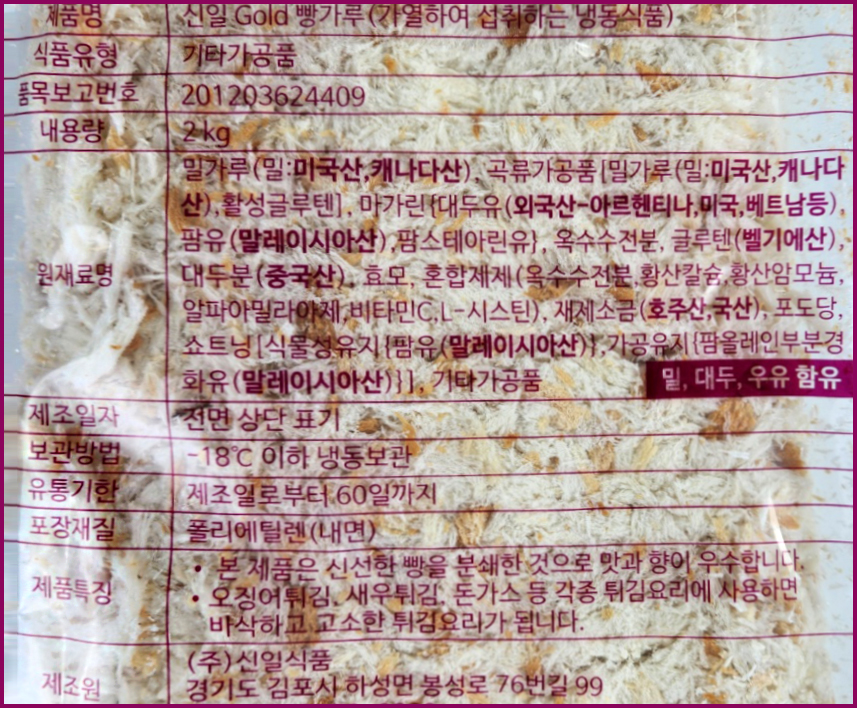 제품명 신일 Gold 빵가루(가열하여 섭취하는 냉동식품)
식품유형 기타가공품
품목보고번호 201203624409
내용량 2 kg
원재료명 밀가루(밀:미국산,캐나다산), 곡류가공품[밀가루(밀:미국산,캐나다
산),활성글루텐], 마가린{대두유(외국산-아르헨티나,미국,베트남등),
팜유(말레이시아산),팜스테아린유}, 옥수수전분, 글루텐(벨기에산),
대두분(중국산), 효모, 혼합제제(옥수수전분,황산칼슘,황산암모늄,
알파아밀라아제,비타민C,L-시스틴), 재제소금(호주산,국산), 포도당,
쇼트닝[식물성유지{팜유(말레이시아산)},가공유지{팜올레인부분경
화유(말레이시아산)}], 기타가공품
밀, 대두, 우유 함유
제조일자 전면 상단 표기
보관방법 -18℃ 이하 냉동보관
유통기한 제조일로부터 60일까지
포장재질 폴리에틸렌(내면)
제품특징 • 본 제품은 신선한 빵을 분쇄한 것으로 맛과 향이 우수합니다.
• 오징어튀김, 새우튀김, 돈가스 등 각종 튀김요리에 사용하면
바삭하고 고소한 튀김요리가 됩니다.
제조원 (주)신일식품
경기도 김포시 하성면 봉성로 76번길 99